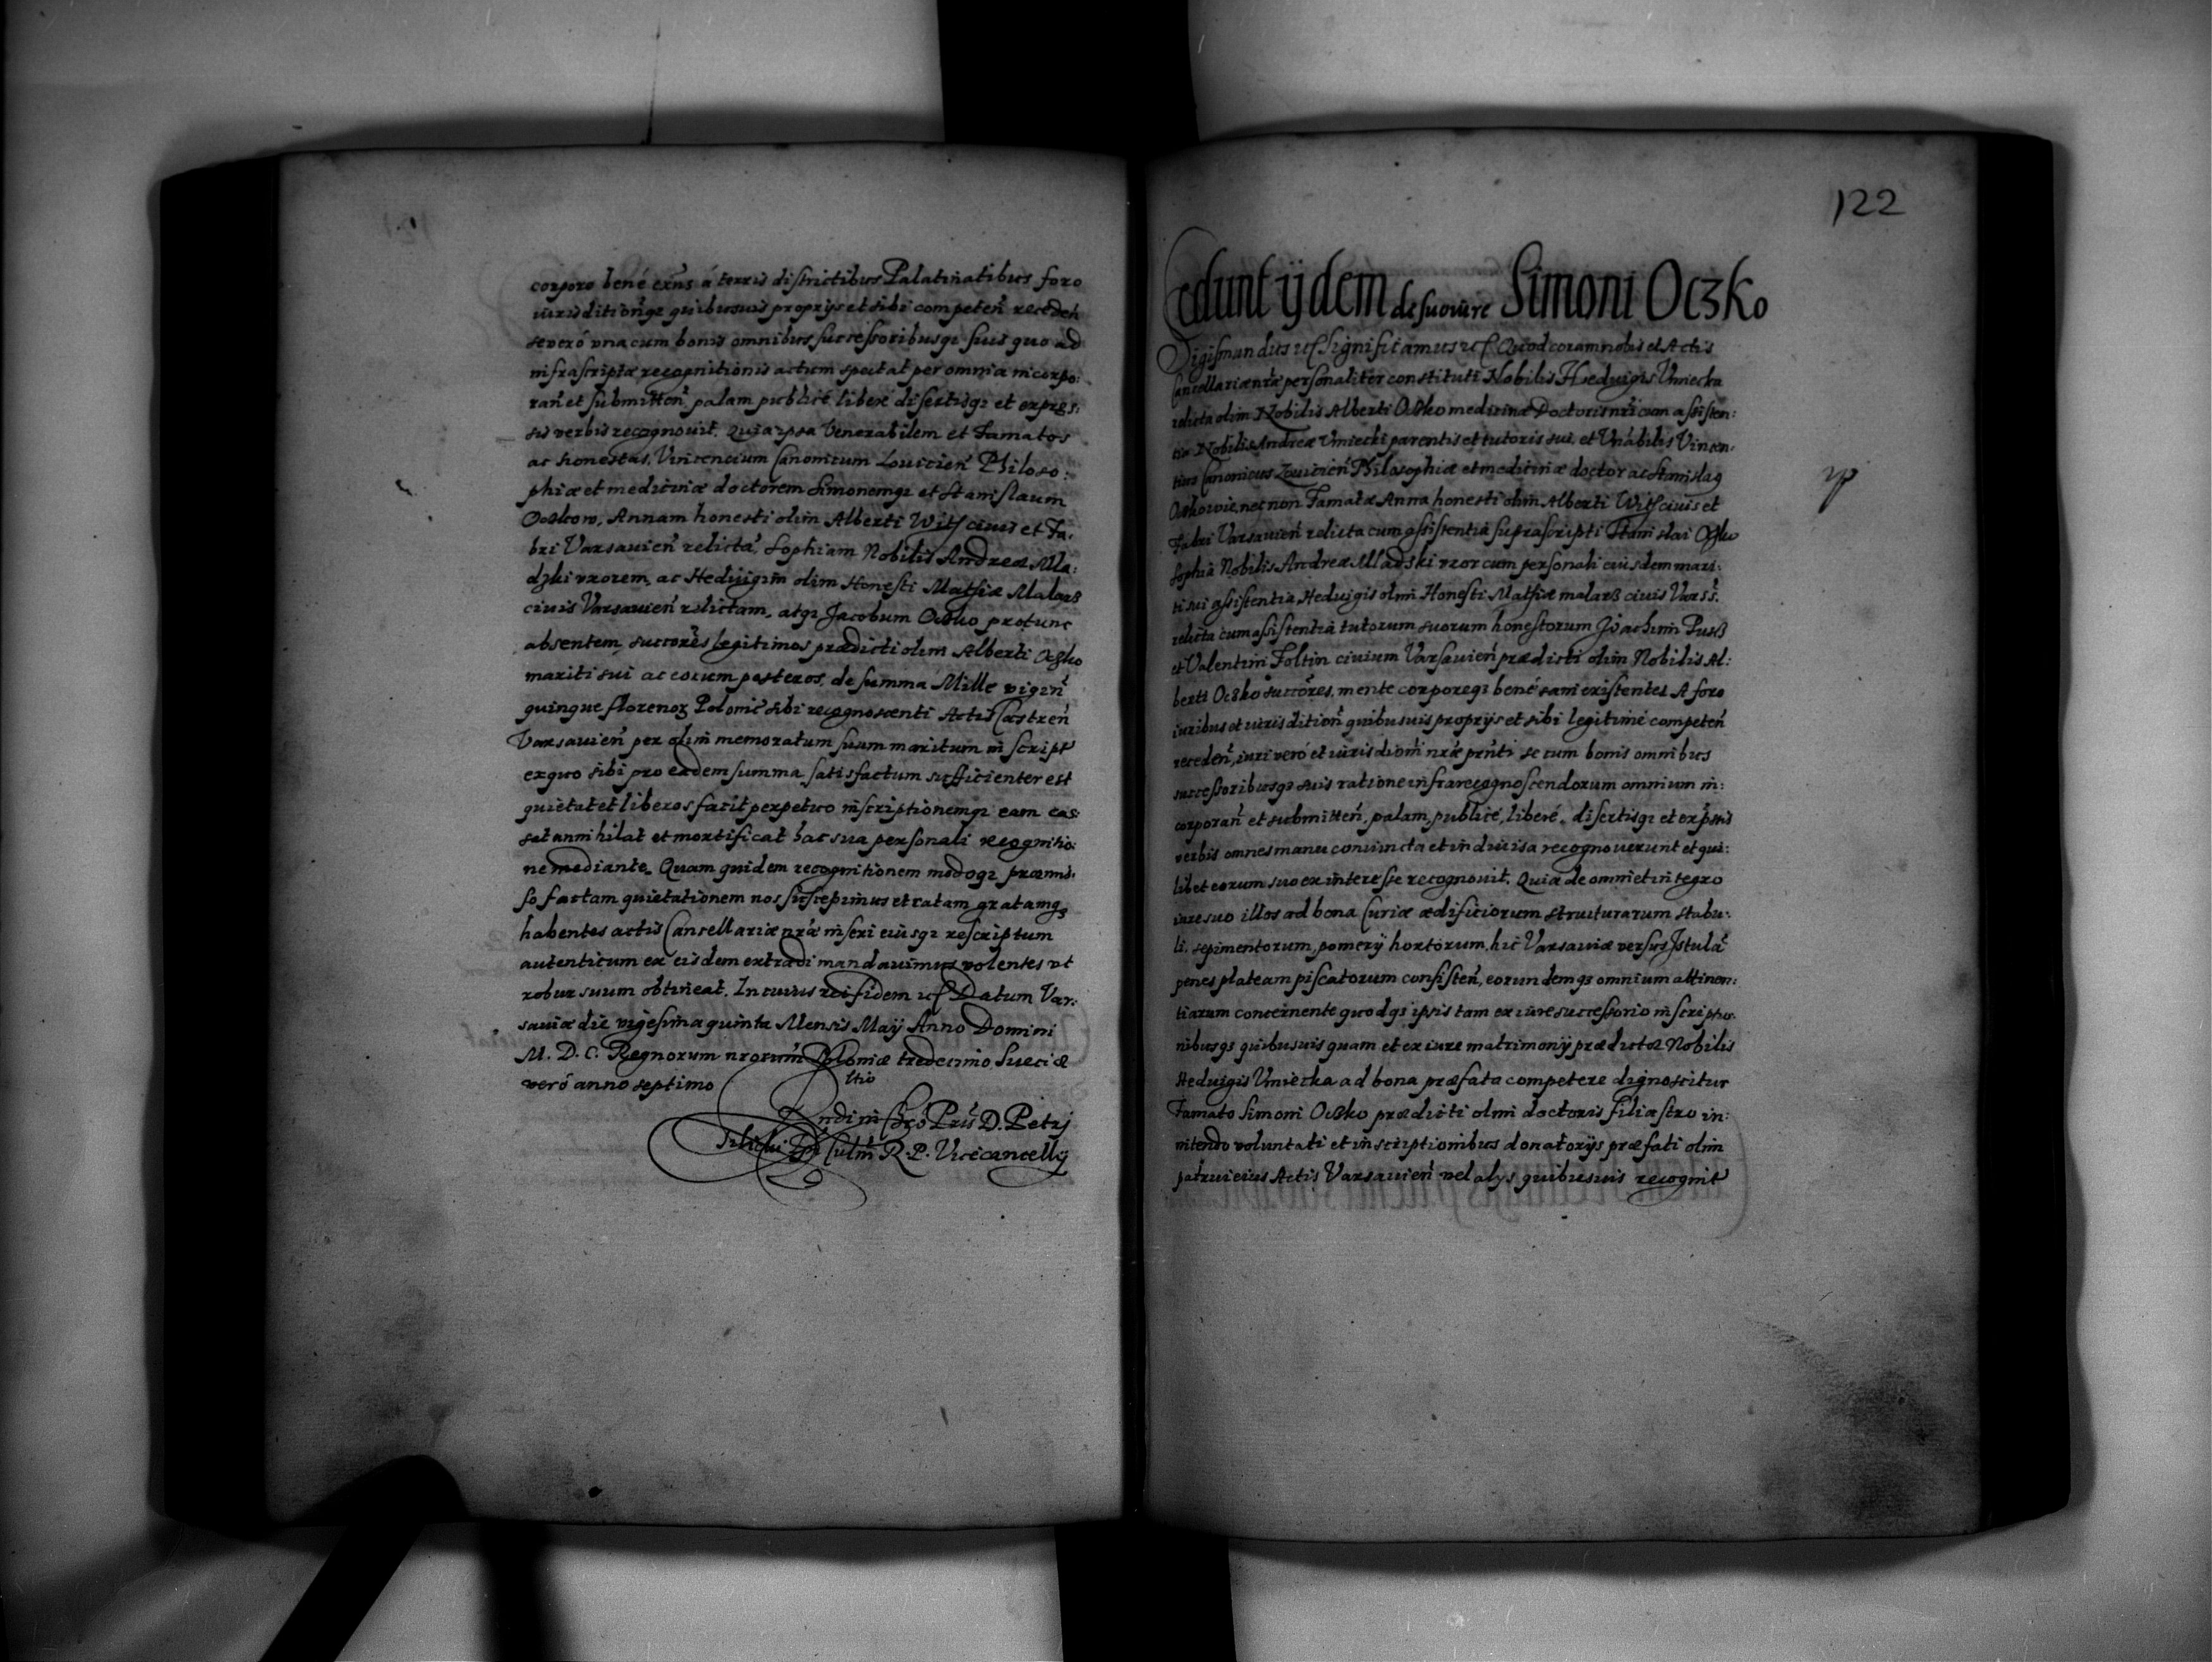 corpore bené exñs á terris districtibus Palatinatibus foro
iurisditionqꝫ quibusuis proprijs et sibi competeñ recedeñ
se veró vna cum bonis omnibus successoribusqꝫ suis quo ad
infrascriptæ recognitionis actum spectat per omnia incorpo:
rañ et submitteñ palam publicé liberé disertisqꝫ et expres:
sis verbis recognouit. Quia ipsa Venerabilem et Famatos
ac honestas, Vincencium Canonicum Louicieñ Philoso:
phiæ et medicinæ doctorem Simonemqꝫ et Stanislaum
Oczkow, Annam honesti olim Alberti Wits ciuis et Fa:
bri Varsauieñ relictã, Sophiam Nobilis Andreæ Mla:
dzki vxorem, ac Heduigim olim Honesti Mathiæ Malarz
ciuis Varsauieñ relictam, atqꝫ Jacobum Oczko protunc
absentem, succorẽs legitimos prædicti olim Alberti Oczko
mariti sui ac eorum posteros, de summa Mille vigin̄
quinque florenoꝝ Polonic̄ sibi recognoscenti Actis Castreñ
Varsauieñ per olim memoratum suum maritum in script̄
ex quo sibi pro eadem summa satisfactum sufficienter est
quietat et liberos facit perpetuo inscriptionemqꝫ eam cas:
sat annihilat et mortificat hac sua personali recognitio:
ne mediante. Quam quidem recognitionem modoqꝫ præmis:
so factam quietationem nos suscepimus et ratam gratamqꝫ
habentes actis Cancellariæ nr̃æ inseri eiusqꝫ rescriptum
autenticum ex eisdem extradi mandauimus volentes vt
robur suum obtineat. In cuius rei fidem ec̃ Datum Var:
sauiæ die vigesima quinta Mensis Maij Anno Domini
M. D. C. Regnorum nrorum Poloniæ tredecimo Sueciæ
veró anno septimo
D. Petrj
R. P. Vicecancellij
122
Cedunt ijdem de suo iure Simoni Oczko
Sigismundus ec̃ Significamus ec̃ Quod coram nobis et Actis
Cancellariæ nr̃æ personaliter constituti Nobilis Heduigis Vmiecka
relicta olim Nobilis Alberti Oczko medicinæ Doctoris nr̃i cum assisten:
tia Nobilis Andreæ Vmiecki parentis et tutoris sui, et Vnãbilis Vincen:
tius Canonicus Louicieñ Philosophiæ et medicinæ doctor ac Stanislaꝯ
Oczkowie, nec non Famatæ Anna honesti olim Alberti Wits ciuis et
Fabri Varsauieñ relicta cum assistentia suprascripti Stanislai Oczko
Sophia Nobilis Andreæ Mladzki vxor cum personali eiusdem mari:
ti sui assistentia, Heduigis olim Honesti Mathiæ malarz ciuis Varss̃.
relicta cum assistentia tutorum suorum honestorum Joachim Pusz
et Valentini Foltin ciuium Varsauieñ prædicti olim Nobilis Al:
berti Oczko succõres, mente corporeqꝫ bené sani existentes A foro
iuribus et iurisdition̄ quibusuis proprijs et sibi legitimé competeñ
recedeñ, iuri veró et iurisdiom̄ nr̃æ prñti se cum bonis omnibus
successoribusqꝫ suis ratione infrarecognoscendorum omnium in:
corporañ et submitteñ, palam, publicé, liberé, disertisqꝫ et exp̃ssis
verbis omnes manu coniuncta et indiuisa recognouerunt et qui:
libet eorum suo ex interesse recognouit, Quia de omni et integro
iure suo illos ad bona Curiæ ædificiorum structurarum stabu:
li, sepimentorum, pomerij hortorum, hic Varsauiæ versus Istulã
penes plateam piscatorum consisteñ, eorundemqꝫ omnium attinen:
tiarum concernente quodqꝫ ipsis tam ex iure successorio inscriptio:
nibusqꝫ quibusuis quam et ex iure matrimonij prædictæ Nobilis
Heduigis Vmiecka ad bona præfata competere dignoscitur
Famato Simoni Oczko prædicti olim doctoris filiastro in:
nitendo voluntati et inscriptionibus donatorijs præfati olim
patrui eius Actis Varsauieñ vel alijs quibusuis recognit̄